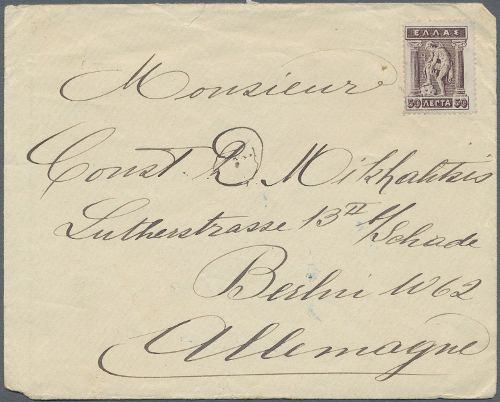 ΕΛΛΑΣ
50 ΛΕΠΤΑ 50
Monsieur
Const. D. Mikhalitsis
Lutherstrasse 13 II b/Schade
Berlin W62
Allemagne